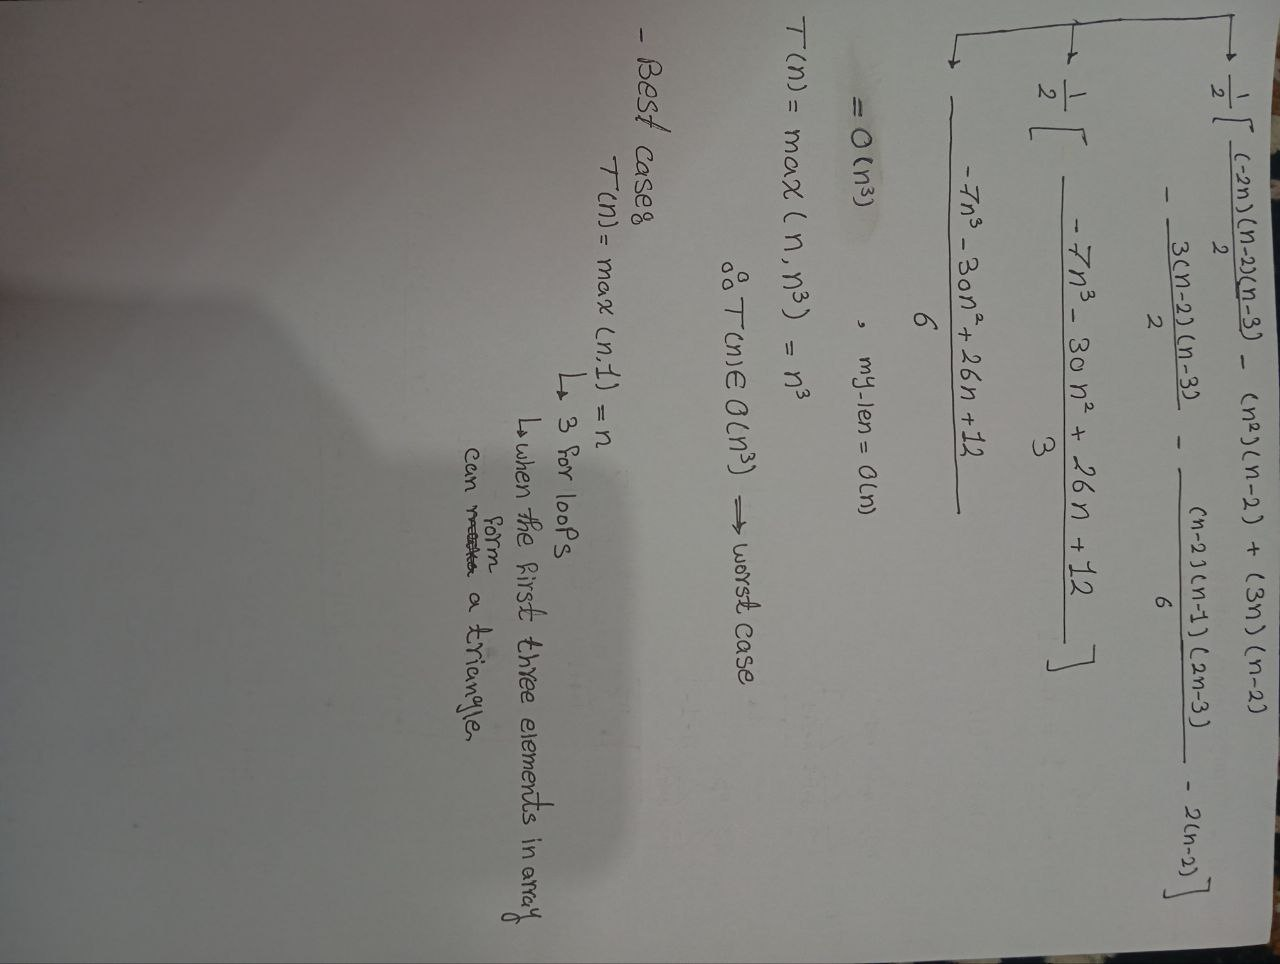 1/2 [ (-2n)(n-2)(n-3)/2 - (n²)(n-2) + (3n)(n-2)
- 3(n-2)(n-3)/2 - (n-2)(n-1)(2n-3)/6 - 2(n-2) ]
1/2 [ -7n³ - 30n² + 26n + 12 / 3 ]
-7n³ - 30n² + 26n + 12 / 6
= O(n³) , my-len = O(n)
T(n) = max(n, n³) = n³
∴ T(n) ∈ O(n³) → worst case
- Best case:
T(n) = max(n,1) = n
↳ 3 for loops
↳ when the first three elements in array
can form a triangle.